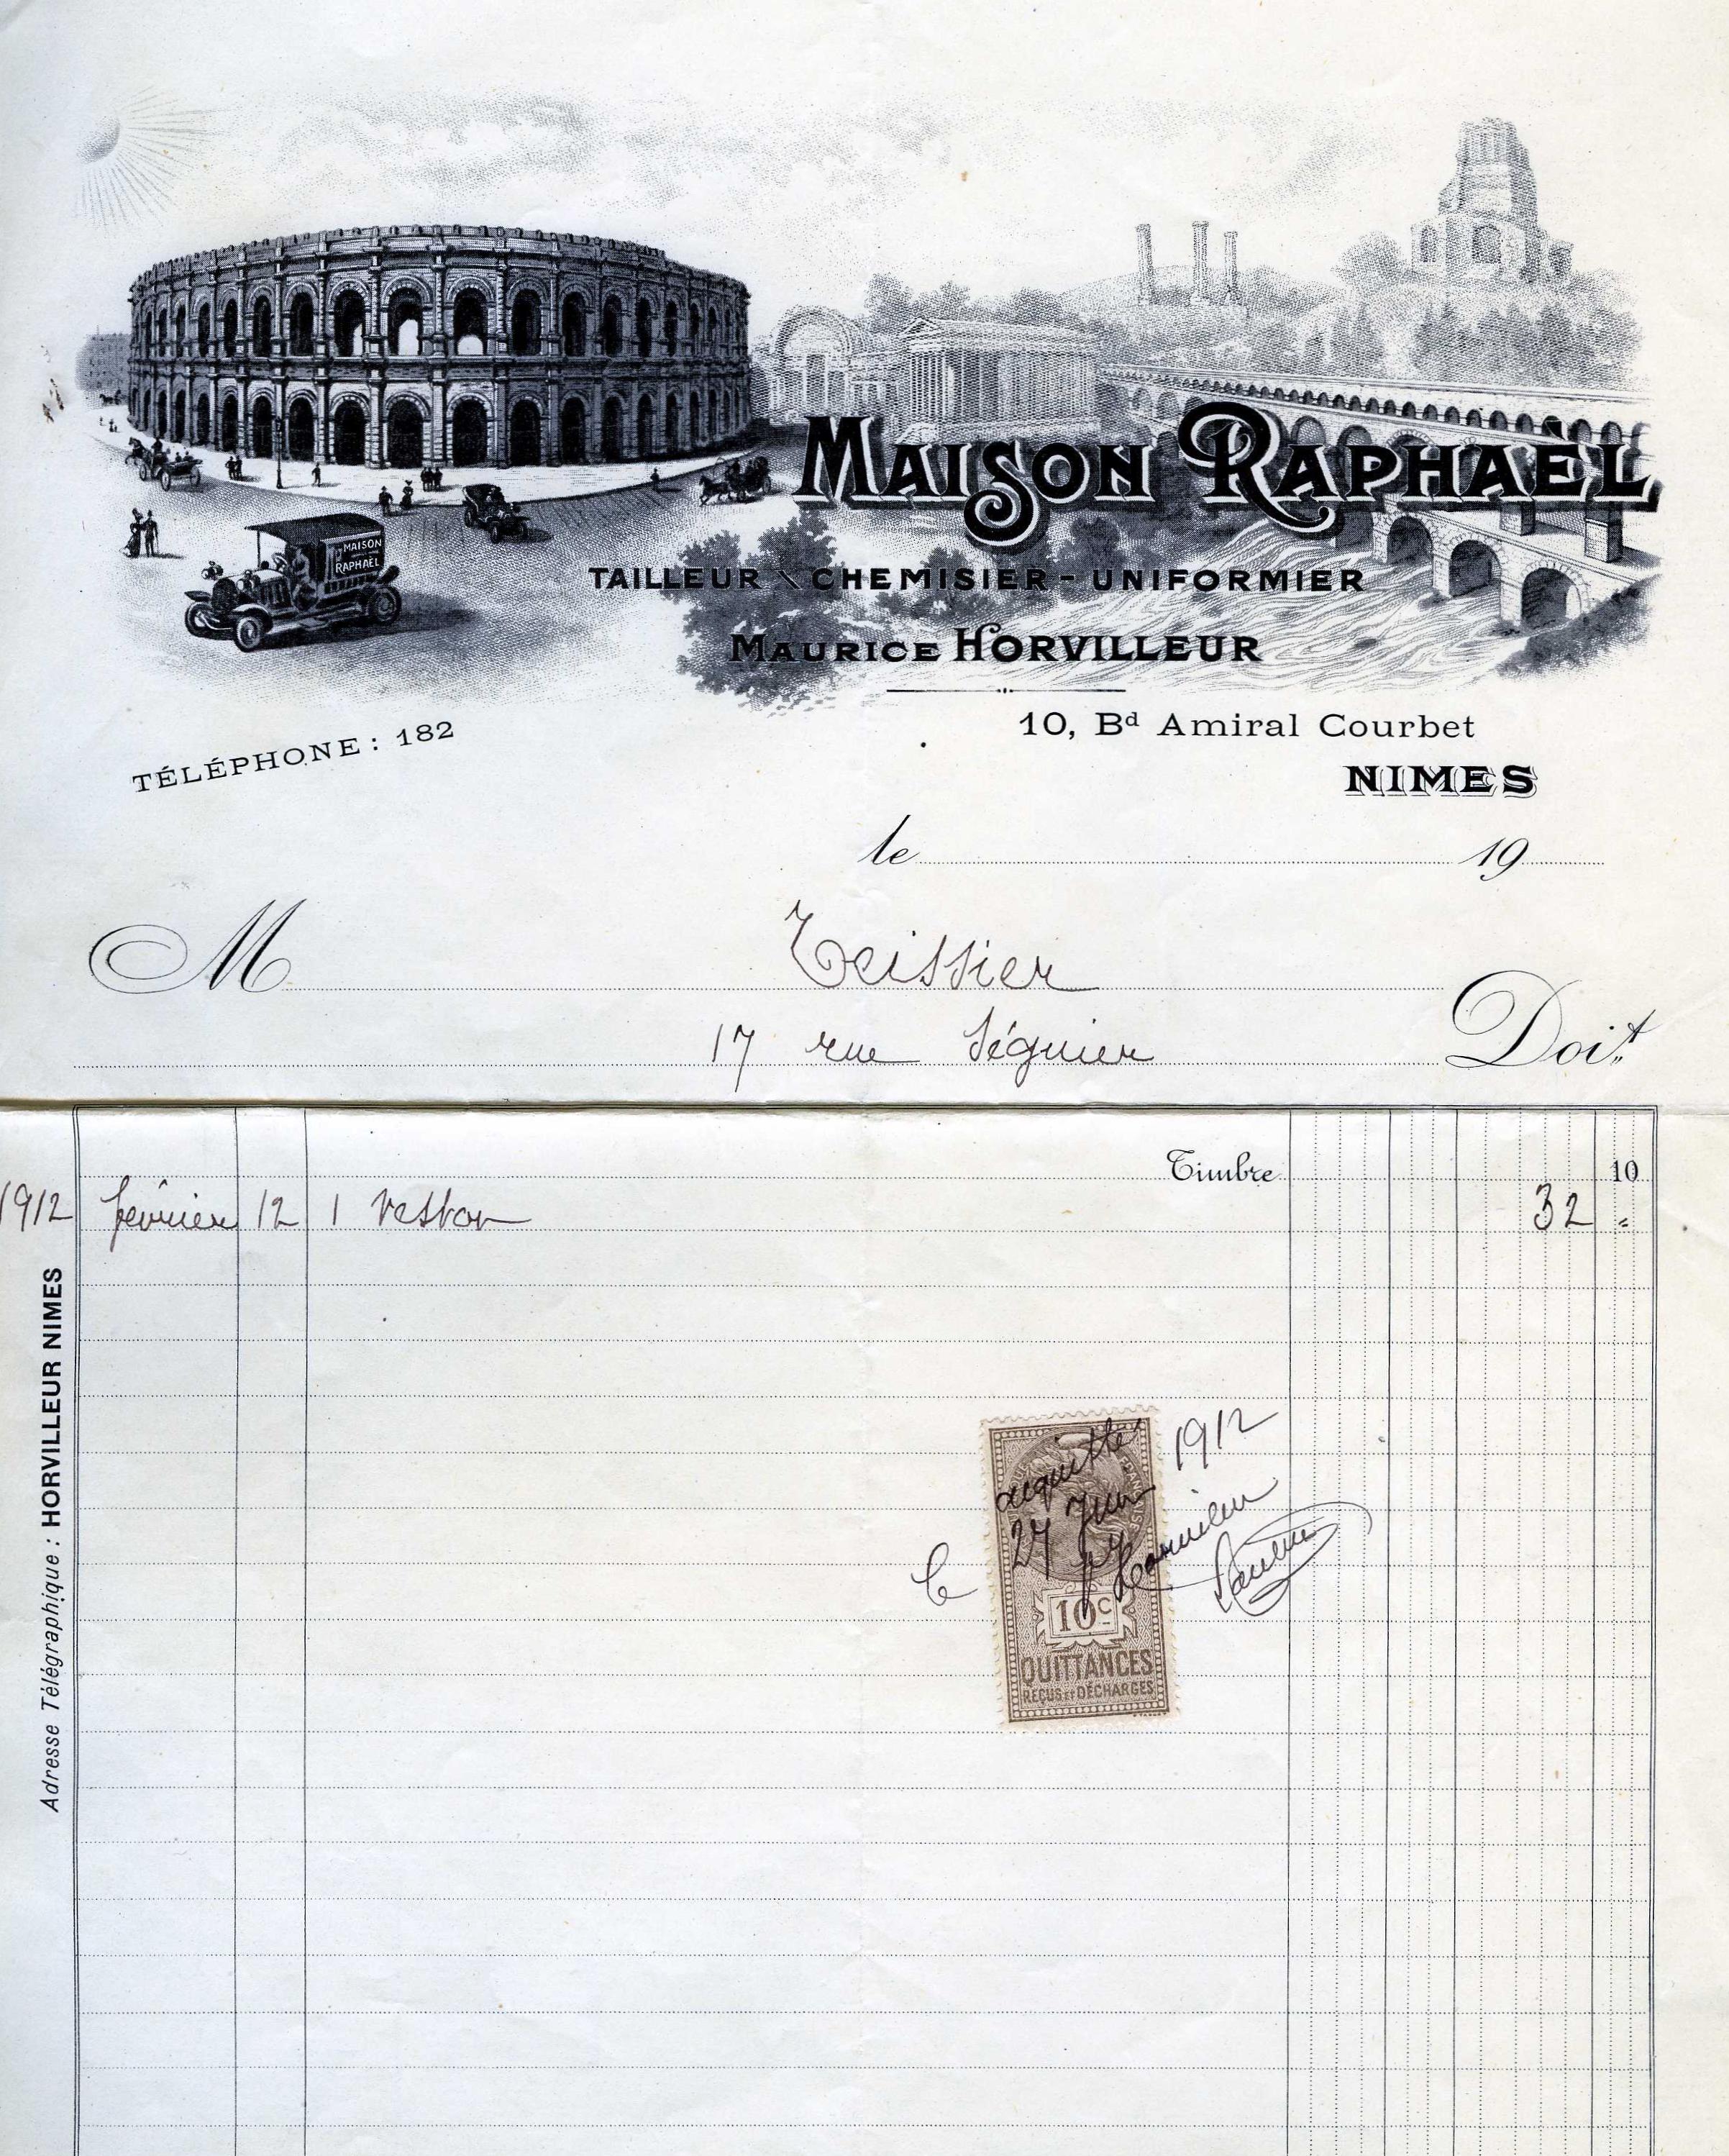 MAISON RAPHAËL
MAISON
RAPHAËL
TAILLEUR \ CHEMISIER - UNIFORMIER
MAURICE HORVILLEUR
TÉLÉPHONE : 182
10, Bd Amiral Courbet
NIMES
le 19
M Teissier
17 rue Séguier Doit
Timbre 10
1912 février 12 1 veston 32 "
Adresse Télégraphique : HORVILLEUR NIMES
acquitté
1912
27 Juin
10c
QUITTANCES
REÇUS ET DÉCHARGES